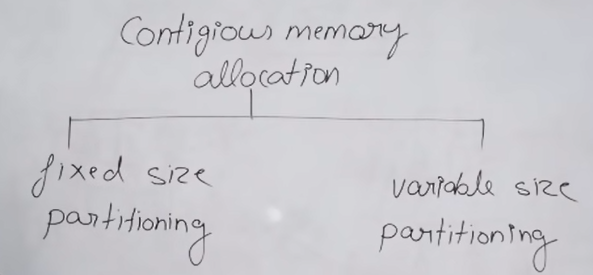 Contigious memory
allocation
fixed size
partitioning
variable size
partitioning